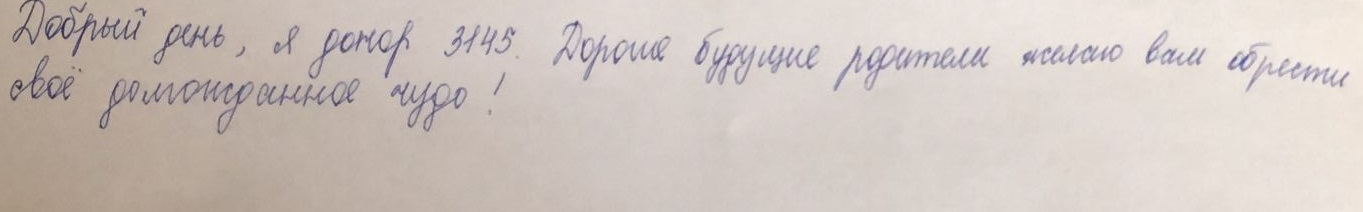 Добрый день, я донор 3145. Дорогие будущие родители желаю вам обрести
своё долгожданное чудо!